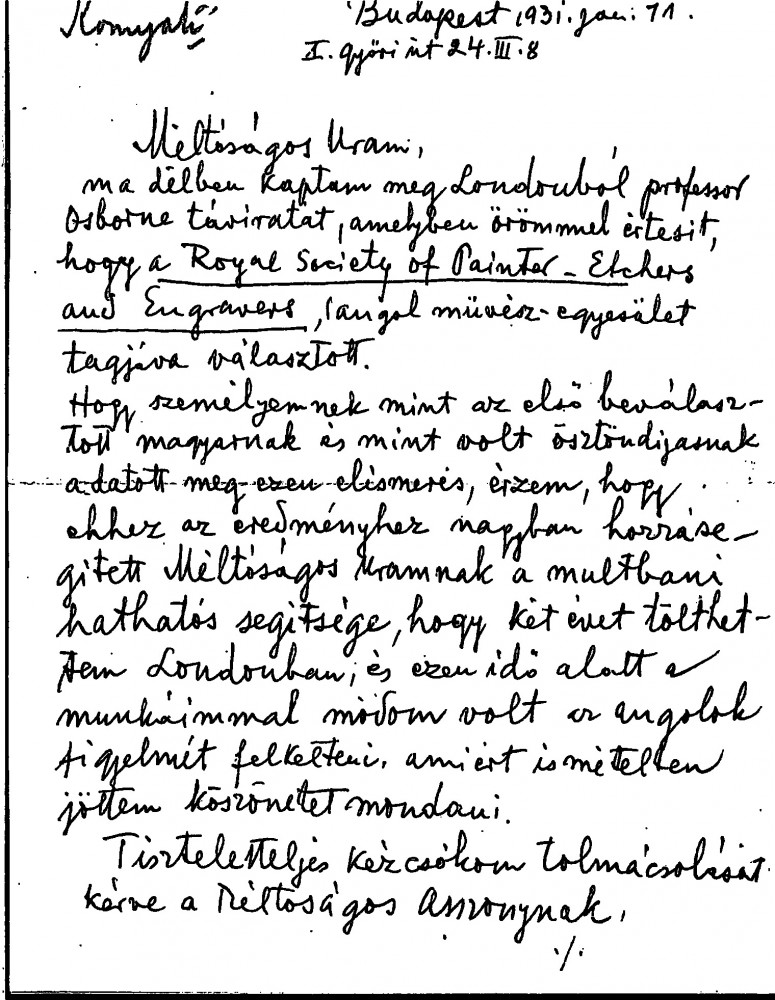 Komjáti
Budapest 1931. jan. 11.
I. győri út 24. III. 8
Méltóságos Uram,
ma délben kaptam meg Londonból professor
Osborne táviratát, amelyben örömmel értesit,
hogy a Royal Society of Painter-Etchers
and Engravers, (angol művész-egyesület
tagjáva választott.
Hogy személyemnek mint az első beválasz-
tott magyarnak és mint volt ösztöndijasnak
adatott meg ezen elismerés, érzem, hogy
ehhez az eredményhez nagyban hozzáse-
gitett Méltóságos Uramnak a multbani
hathatós segitsége, hogy két évet tölthet-
tem Londonban, és ezen idő alatt a
munkáimmal módom volt az angolok
figyelmét felkelteni. amiért ismételten
jöttem köszönetet mondani.
Tiszteletteljes kézcsókom tolmácsolását
kérve a Méltóságos Asszonynak,
./.